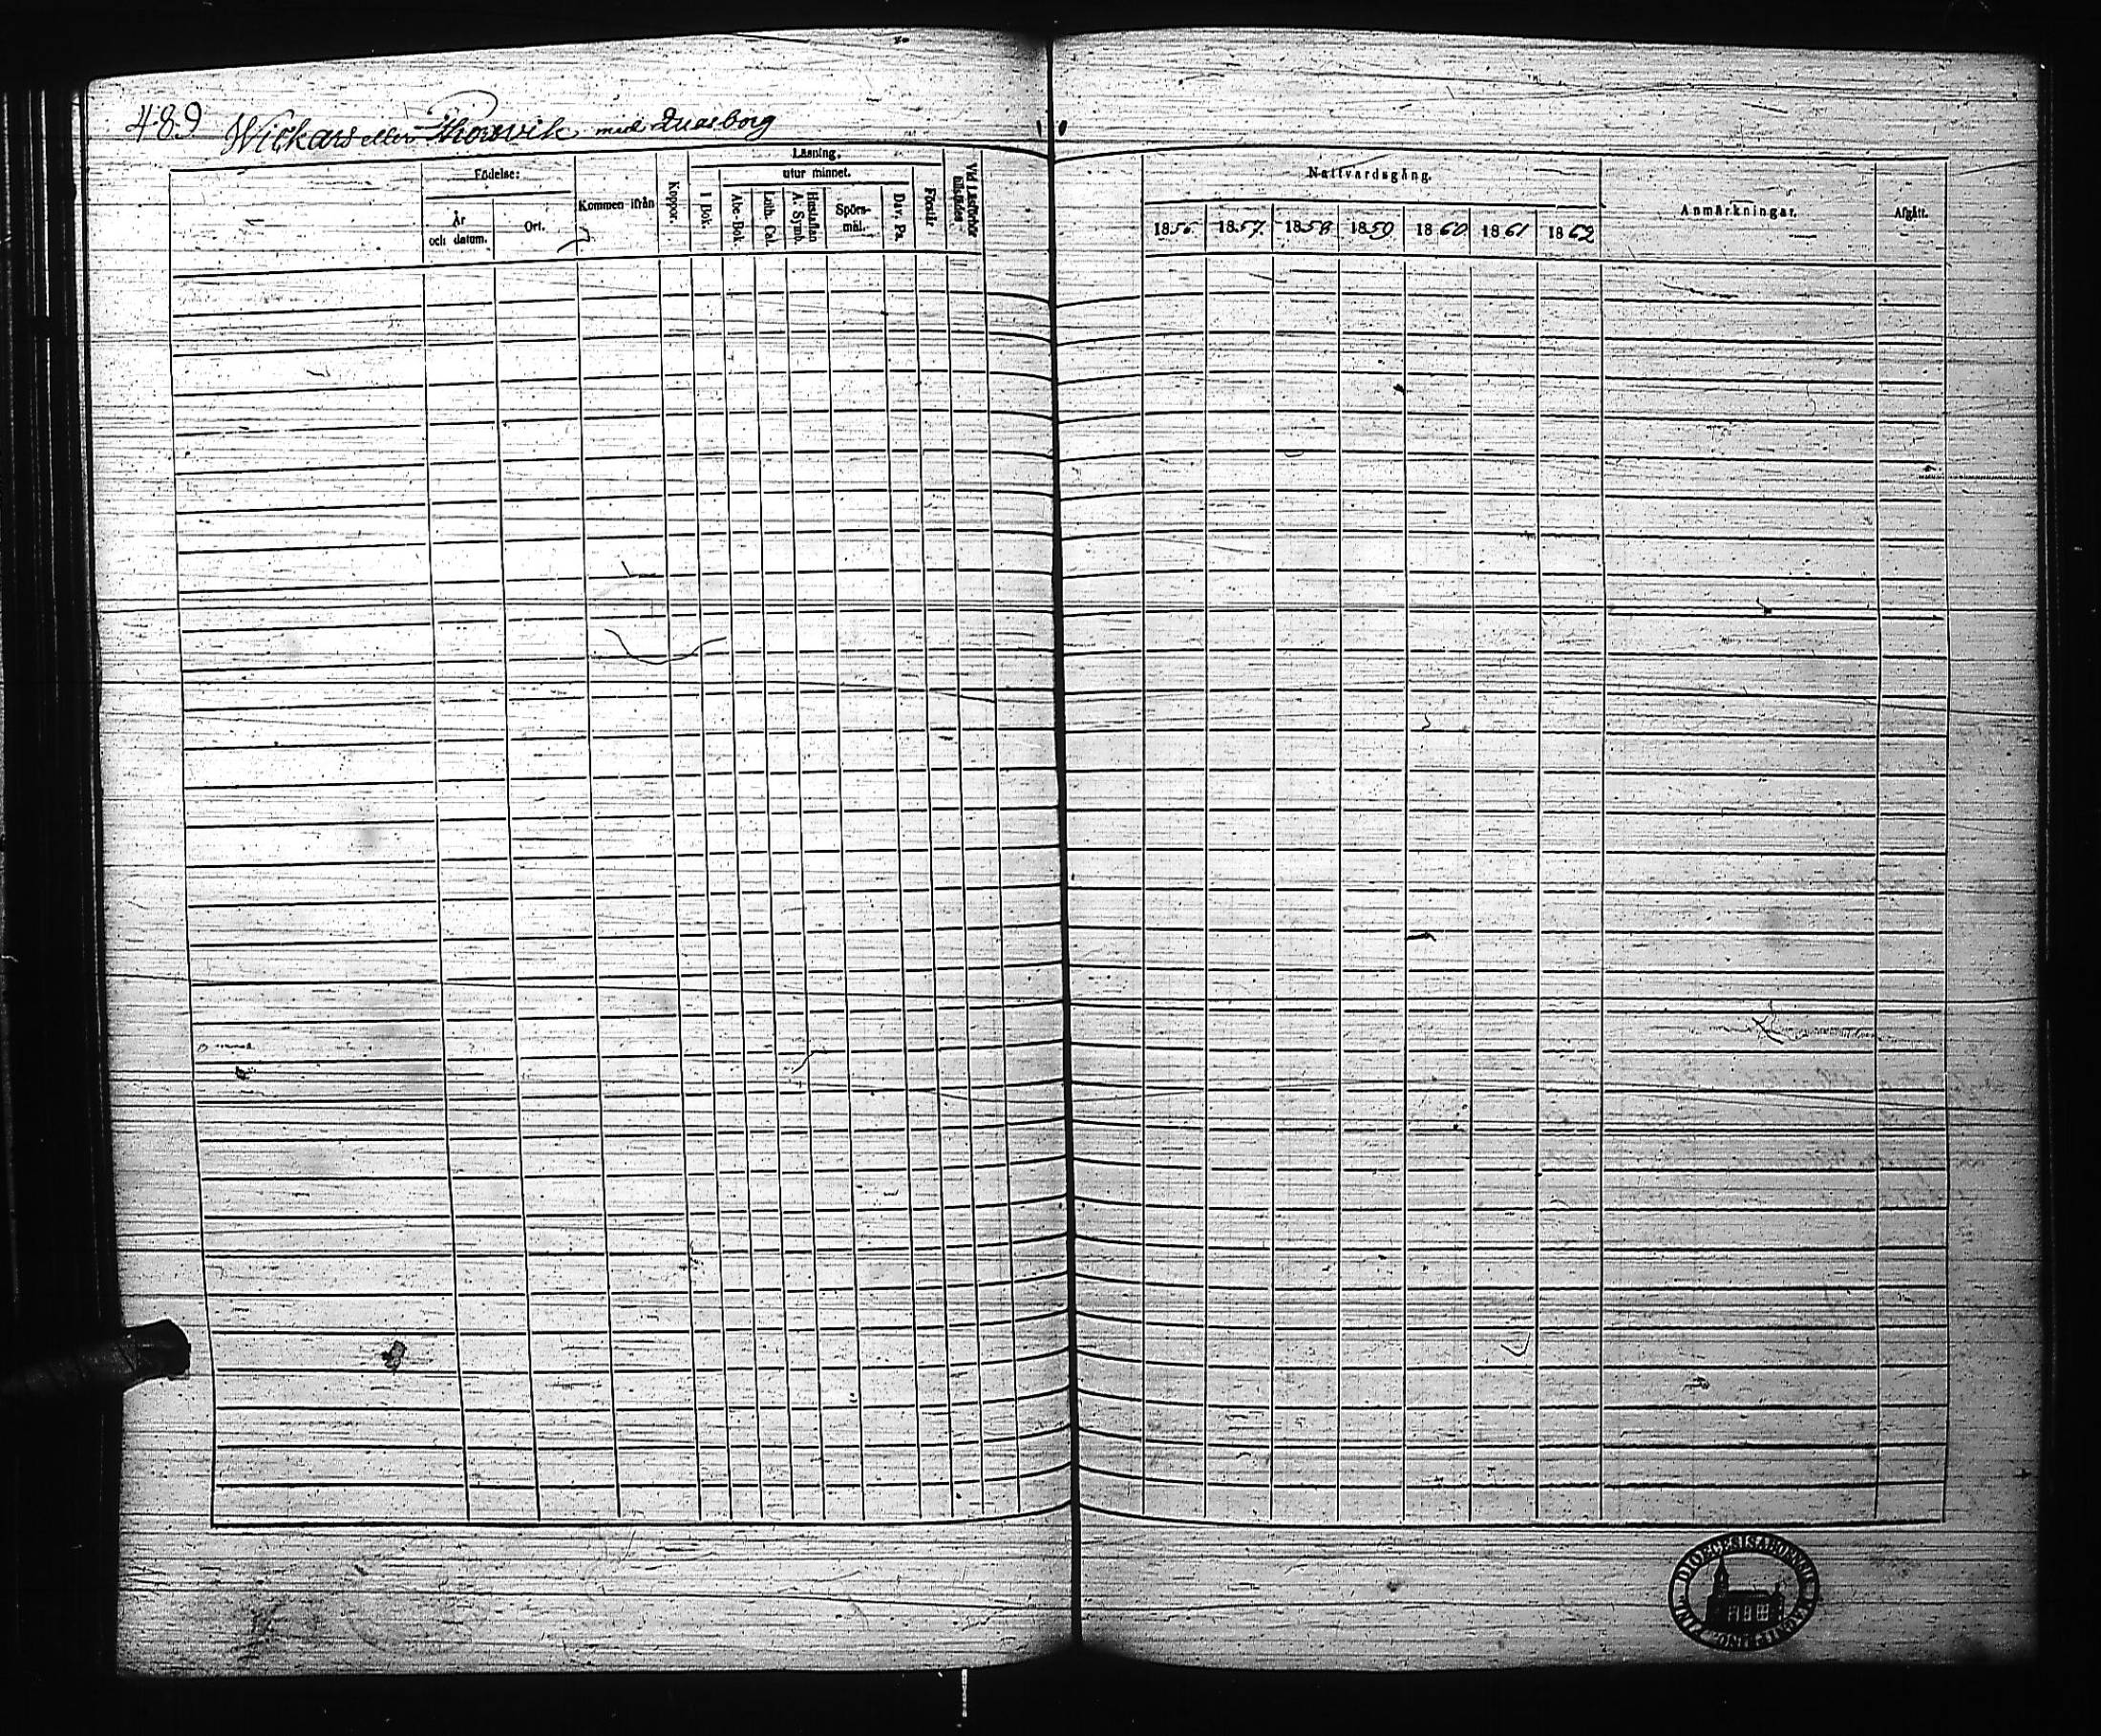 489 Wickars eller Thorsvik med
Läsning.
Födelse:
utur minnet.
År
och datum.
Ort.
Kommen ifrån
Koppor.
I Bok.
Abc-Bok.
Luth. Cat.
Hustaflan
A. Symb.
Spörs-
mål.
Dav. Ps.
Förstår
Vid Läsförhör
tillstädes
Nattvardsgång.
1856.
1857.
1858
1859
1860
1861
1862
Anmärkningar.
Afgått.